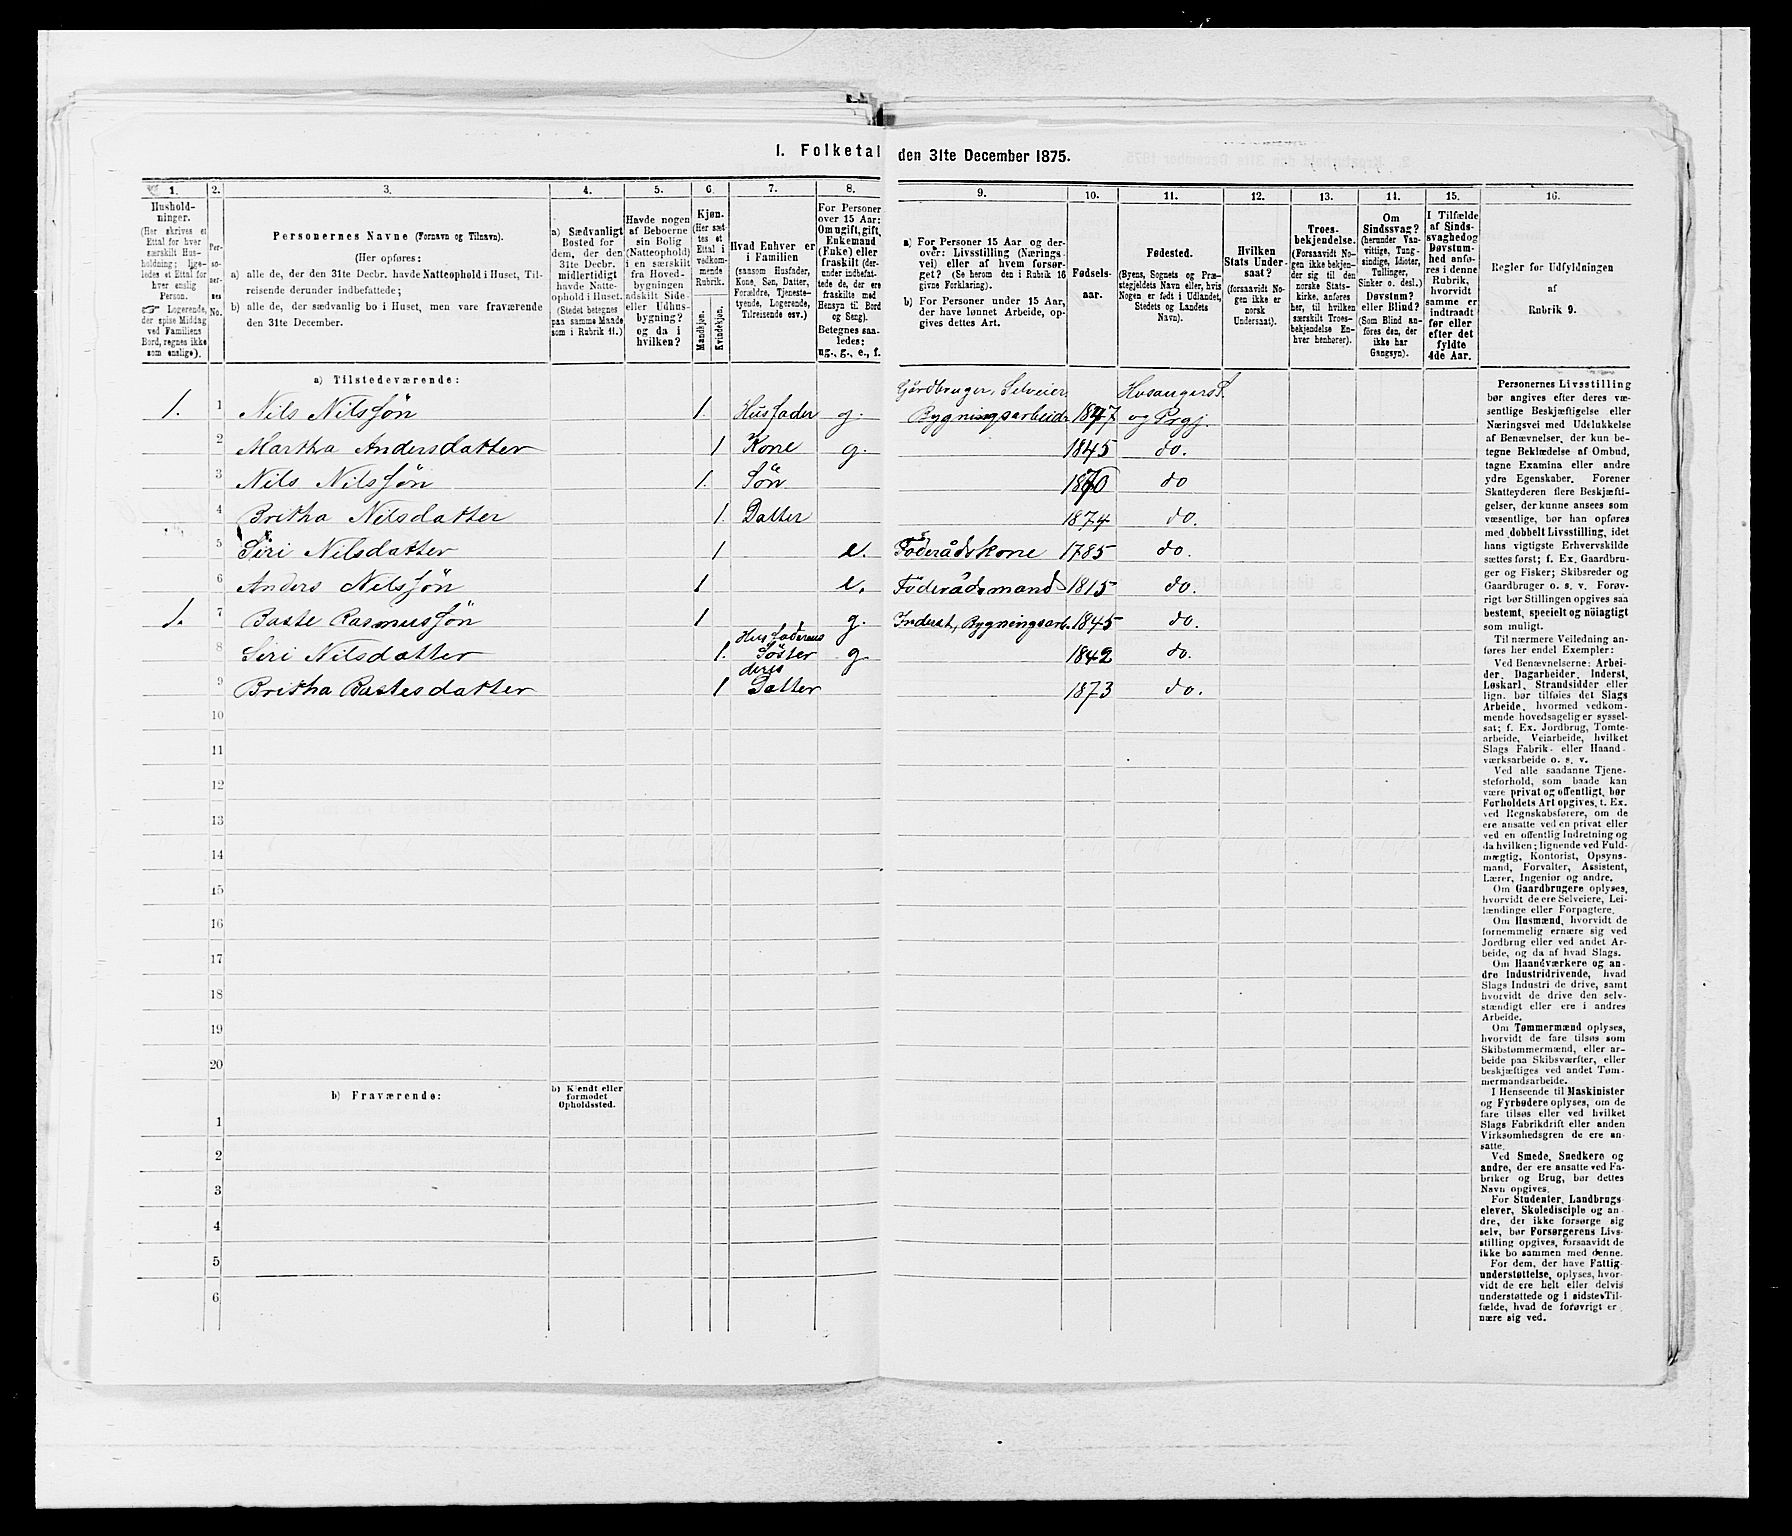 1. Folketal den 31te December 1875.
1. 2. 3. 4. 5. 6. 7. 8. 9. 10. 11. 12. 13. 14. 15. 16.
Hushold-
ninger.
(Her skrives et
Ettal for hver
særskilt Hus-
holdning; lige-
ledes et Ettal for
hver enslig
Person.
☞ Logerende,
der spise Middag
ved Familiens
Bord, regnes ikke
som enslige).
Per-
so-
ner-
nes
No.
Personernes Navne (Fornavn og Tilnavn).
(Her opføres:
a) alle de, der den 31te Decbr. havde Natteophold i Huset, Til-
reisende derunder indbefattede;
b) alle de, der sædvanlig bo i Huset, men vare fraværende
den 31te December.
a) Sædvanligt
Bosted for
dem, der den
31te Decbr.
midlertidigt
havde Natte-
ophold i Huset.
(Stedet betegnes
paa samme Maade
som i Rubrik 11.)
Havde nogen
af Beboerne
sin Bolig
(Natteophold)
i en særskilt
fra Hoved-
bygningen
adskilt Side-
eller Udhus-
bygning?
og da i
hvilken?
Kjøn.
(Her sæt-
tes et
Ettal i
vedkom-
mende
Rubrik.
Mandkjøn.
Kvindekjøn.
Hvad Enhver er
i Familien
(saasom Husfader,
Kone, Søn, Datter,
Forældre, Tjeneste-
tyende, Logerende,
Tilreisende osv.)
For Personer
over 15 Aar:
Om ugift, gift,
Enkemand
(Enke) eller
fraskilt (der-
under indbefat-
tede de, der ere
fraskilte med
Hensyn til Bord
og Seng).
Betegnes saa-
ledes:
ug., g., e., f.
a) For Personer 15 Aar og der-
over: Livsstilling (Nærings-
vei) eller af hvem forsør-
get? (Se herom den i Rubrik 16
givne Forklaring).
b) For Personer under 15 Aar,
der have lønnet Arbeide, op-
gives dettes Art.
Fødsels-
aar.
Fødested.
(Byens, Sognets og Præ-
stegjeldets Navn eller, hvis
Nogen er født i Udlandet,
Stedets og Landets
Navn).
Hvilken
Stats Under-
saat?
(forsaavidt No-
gen ikke er
norsk
Undersaat).
Troes-
bekjendelse.
(Forsaavidt No-
gen ikke bekjen-
der sig til den
norske Stats-
kirke. anføres
her, til hvilken
særskilt Troes-
bekjendelse En-
hver henhører).
Om
Sindssvag?
(herunder Van-
vittige, Tung-
sindige, Idioter,
Tullinger,
Sinker o. desl.)
Døvstum?
eller Blind?
(Som Blind an-
føres den, der
ikke har
Gangsyn).
I Tilfælde
af Sinds-
svaghed og
Døvstum-
hed anfø-
res i denne
Rubrik,
hvorvidt
samme er
indtraadt
før eller
efter det
fyldte
4de Aar.
Regler for Udfyldningen
af
Rubrik 9.
a) Tilstedeværende:
Gårdbruger, Selveier Husanger S.
1. 1 Nils Nilssøn 1. Husfader g. Bygningsarbeider 1847 og Prgj.
2 Martha Andersdatter 1 Kone g. 1845 do.
3 Nils Nilssøn 1. Søn 1870 do
4 Britha Nilsdatter 1. Datter 1874 do.
5 Siri Nilsdatter 1 e. Föderådskone 1785 do.
6 Anders Nilssøn 1 e. Föderådsmand 1815 do.
1. 7 Baste Rasmussøn 1 g. Inderst, Bygningsarb. 1845 do.
Husfaderens
8 Siri Nilsdatter 1. Söster g 1842 do.
deres
9 Britha Bastesdatter 1 Datter 1873 do.
10
11
12
13
14
15
16
17
18
19
20
b) Fraværende:
b) Kjendt eller
formodet
Opholdssted.
1
2
3
4
5
6
Personernes Livsstilling
bør angives efter deres væ-
sentlige Beskjæftigelse eller
Næringsvei med Udelukkelse
af Benævnelser, der kun be-
tegne Beklædelse af Ombud,
tagne Examina eller andre
ydre Egenskaber. Forener
Skatteyderen flere Beskjæfti-
gelser, der kunne ansees som
væsentlige, bør han opføres
med dobbelt Livsstilling, idet
hans vigtigste Erhvervskilde
sættes først; f. Ex. Gaardbru-
ger og Fisker; Skibsreder og
Gaardbruger o. s. v. Forøv-
rigt bør Stillingen opgives saa
bestemt, specielt og nöiagtigt
som muligt.
Til nærmere Veiledning an-
føres her endel Exempler:
Ved Benævnelserne: Arbei-
der, Dagarbeider, Inderst,
Løskarl, Strandsidder eller
lign. bør tilføies det Slags
Arbeide, hvormed vedkom-
mende hovedsagelig er syssel-
sat; f. Ex. Jordbrug, Tomte-
arbeide, Veiarbeide, hvilket
Slags Fabrik- eller Haand-
værksarbeide o. s. v.
Ved alle saadanne Tjene-
steforhold, som baade kan
være privat og offentligt, bør
Forholdets Art opgives, t. Ex.
ved Regnskabsførere, om de
ere ansatte ved en privat eller
ved en offentlig Indretning og
da hvilken; lignende ved Fuld-
mægtig, Kontorist, Opsyns-
mand, Forvalter, Assistent,
Lærer, Ingeniør og andre.
Om Gaardbrugere oplyses,
hvorvidt de ere Selveiere, Lei-
lændinge eller Forpagtere.
Om Husmænd, hvorvidt de
fornemmelig ernære sig ved
Jordbrug eller ved andet Ar-
beide, og da af hvad Slags.
Om Haandværkere og an-
dre Industridrivende, hvad
Slags Industri de drive, samt
hvorvidt de drive den selv-
stændigt eller ere i andres
Arbeide.
Om Tømmermænd oplyses,
hvorvidt de fare tilsøs som
Skibstømmermænd, eller ar-
beide paa Skibsværfter, eller
beskjæftiges ved andet Tøm-
mermandsarbeide.
I Henseende til Maskinister
og Fyrbødere oplyses, om de
fare tilsøs eller ved hvilket
Slags Fabrikdrift eller anden
Virksomhedsgren de ere an-
satte.
Ved Smede, Snedkere og
andre, der ere ansatte ved Fa-
briker og Brug, bør dettes
Navn opgives.
For Studenter, Landbrugs-
elever, Skoledisciple og an-
dre, der ikke forsørge sig
selv, bør Forsørgerens Livs-
stilling opgives, forsaavidt de
ikke bo sammen med denne.
For dem, der have Fattig-
understøttelse, oplyses, hvor-
vidt de ere helt eller delvis
understøttede og i sidste Til-
fælde, hvad de forøvrigt er-
nære sig ved.